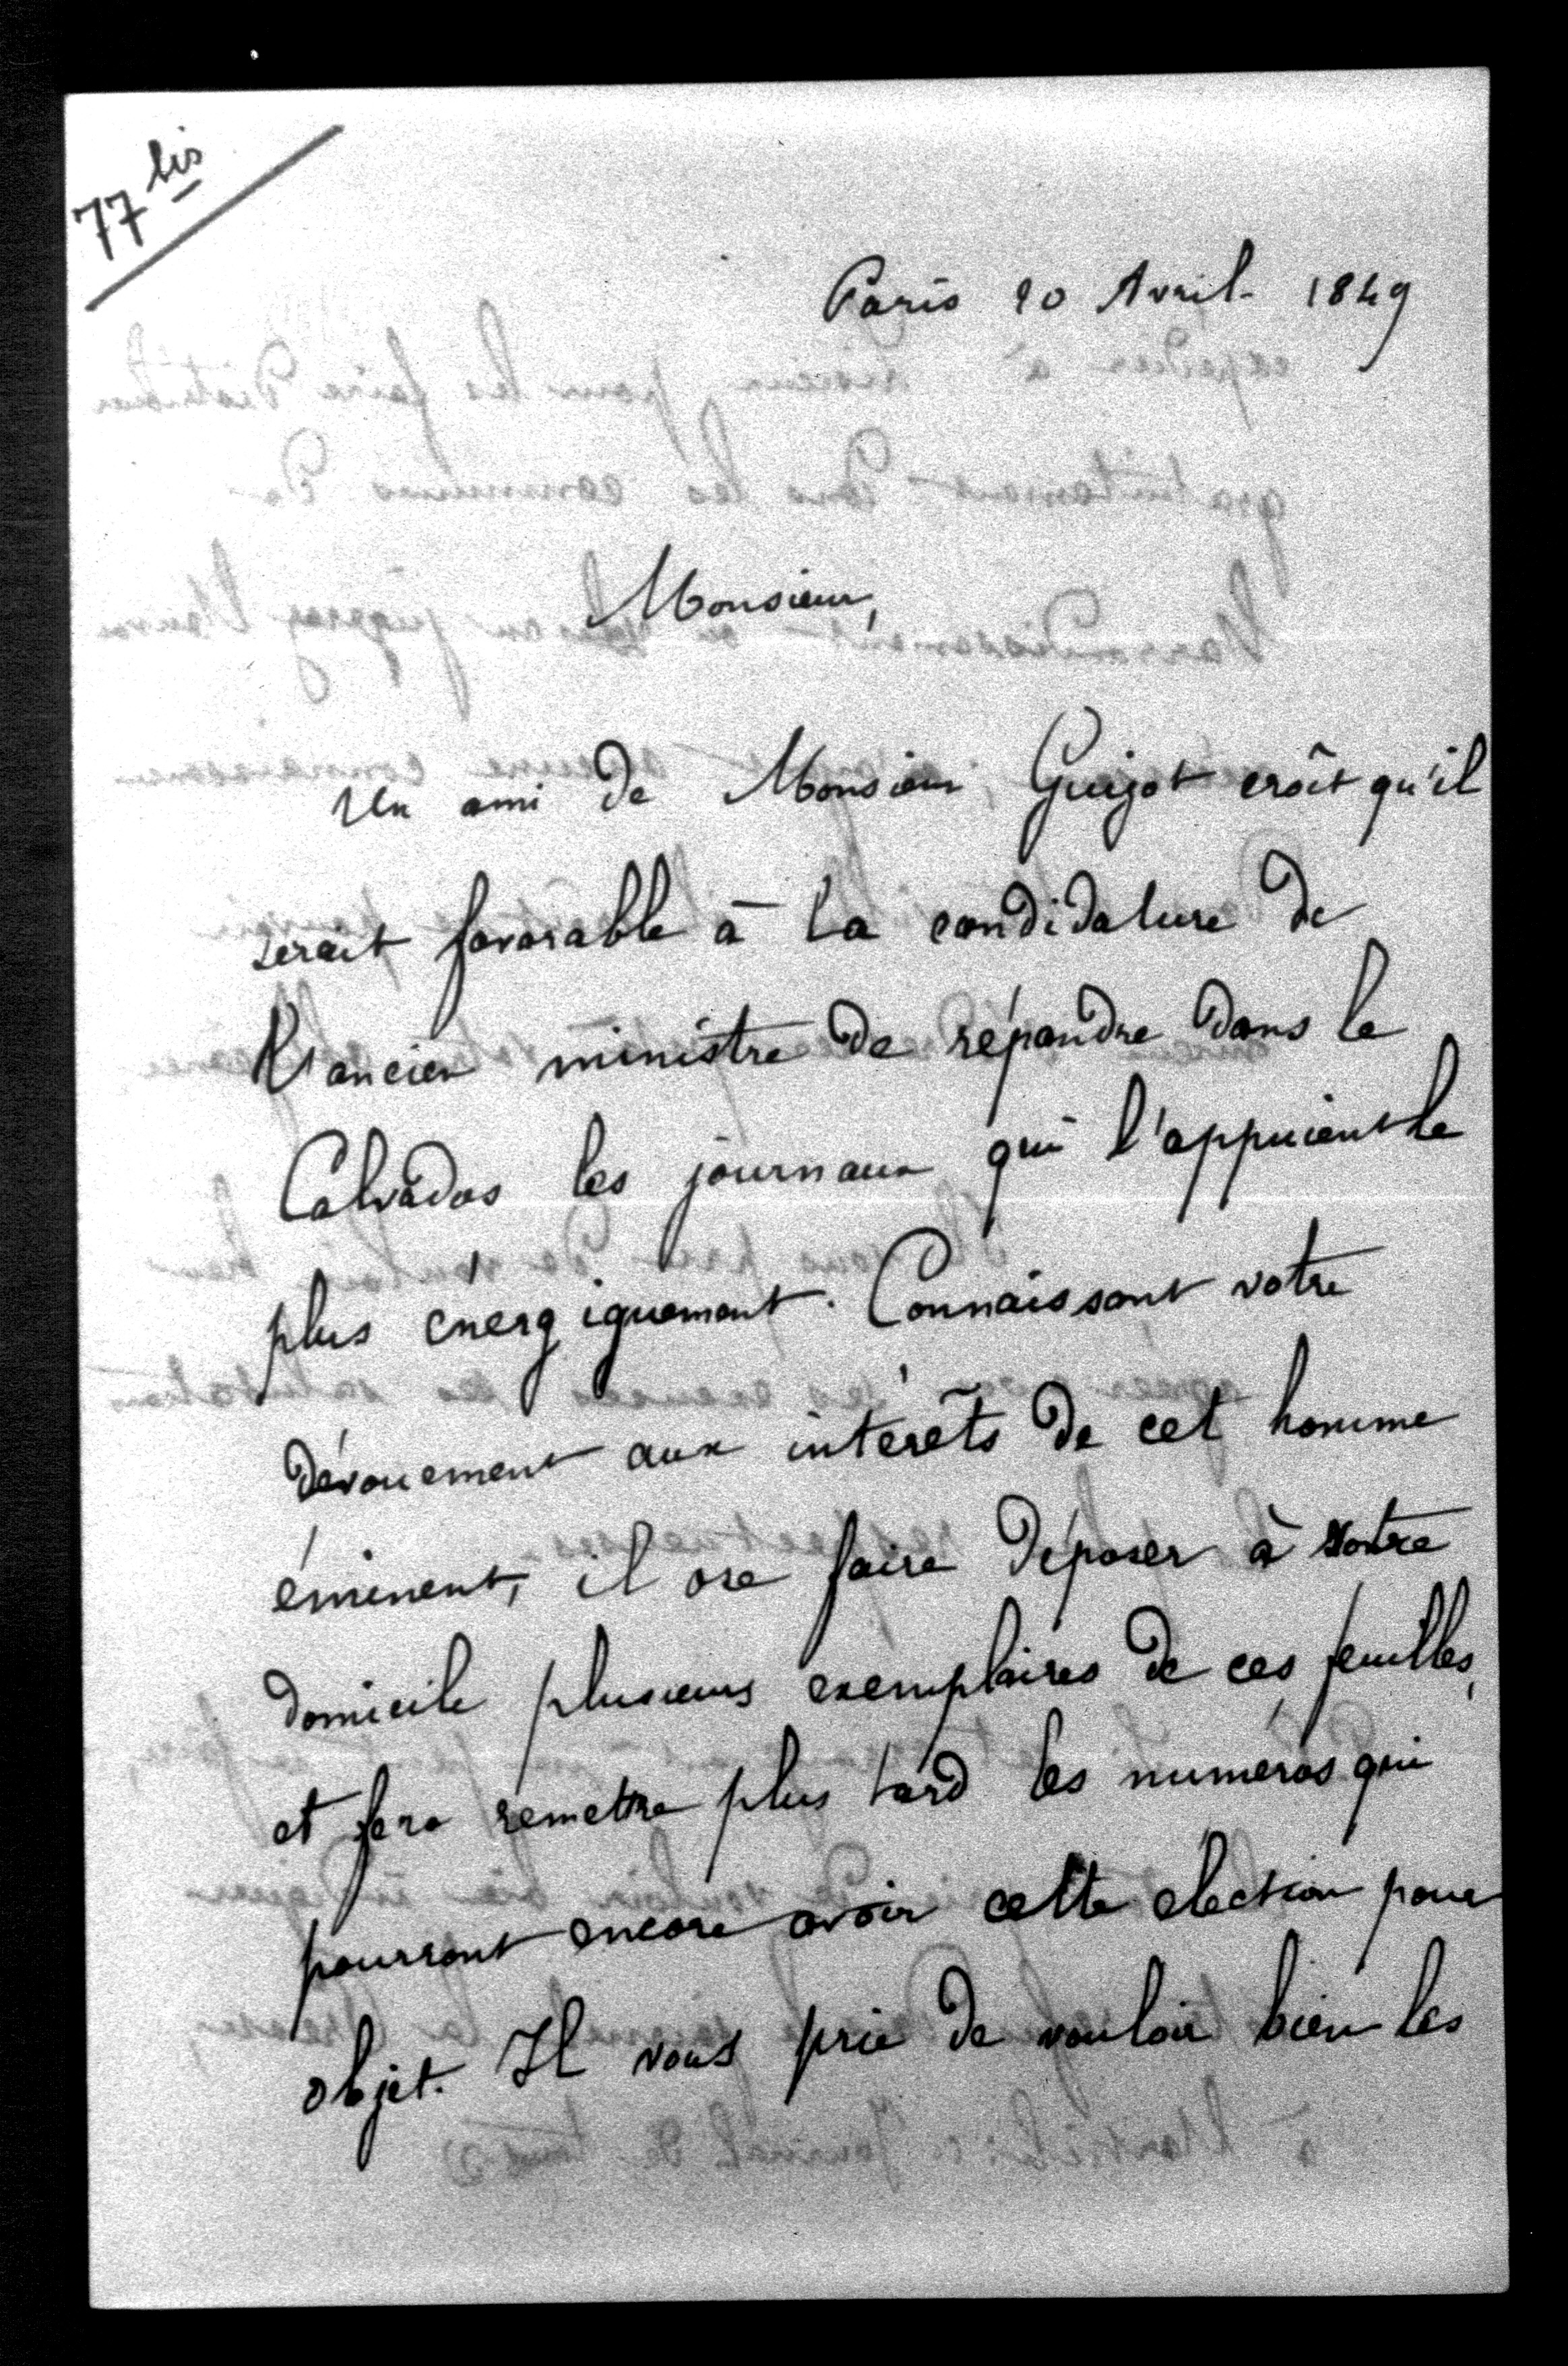 77 bis
Paris 20 Avril 1849
Monsieur,
Un ami de Monsieur Guizot croît qu'il
serait favorable à la candidature de
l'ancien ministre de répandre dans le
Calvados les journaux qui l'appuient le
plus énergiquement. Connaissant votre
dévouement aux intérêts de cet homme
éminent, il ose faire déposer à votre
domicile plusieurs exemplaires de ces feuilles,
et fera remettre plus tard les numéros qui
pourront encore avoir cette élection pour
objet. Il vous prie de vouloir bien les